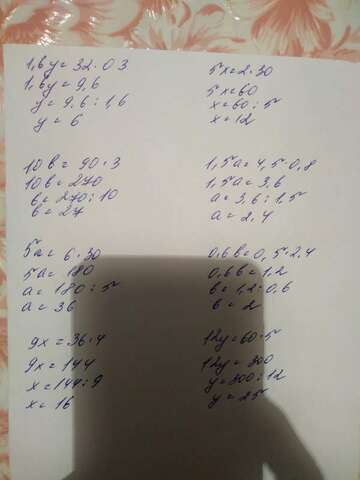 1,6y = 32 · 0 3
1,6y = 9,6
y = 9,6 : 1,6
y = 6
5x = 2 · 30
5x = 60
x = 60 : 5
x = 12
10в = 90 · 3
10в = 270
в = 270 : 10
в = 27
1,5a = 4,5 · 0,8
1,5a = 3,6
a = 3,6 : 1,5
a = 2,4
5a = 6 · 30
5a = 180
a = 180 : 5
a = 36
0,6в = 0,5 · 2,4
0,6в = 1,2
в = 1,2 : 0,6
в = 2
9x = 36 · 4
9x = 144
x = 144 : 9
x = 16
12y = 60 · 5
12y = 300
y = 300 : 12
y = 25